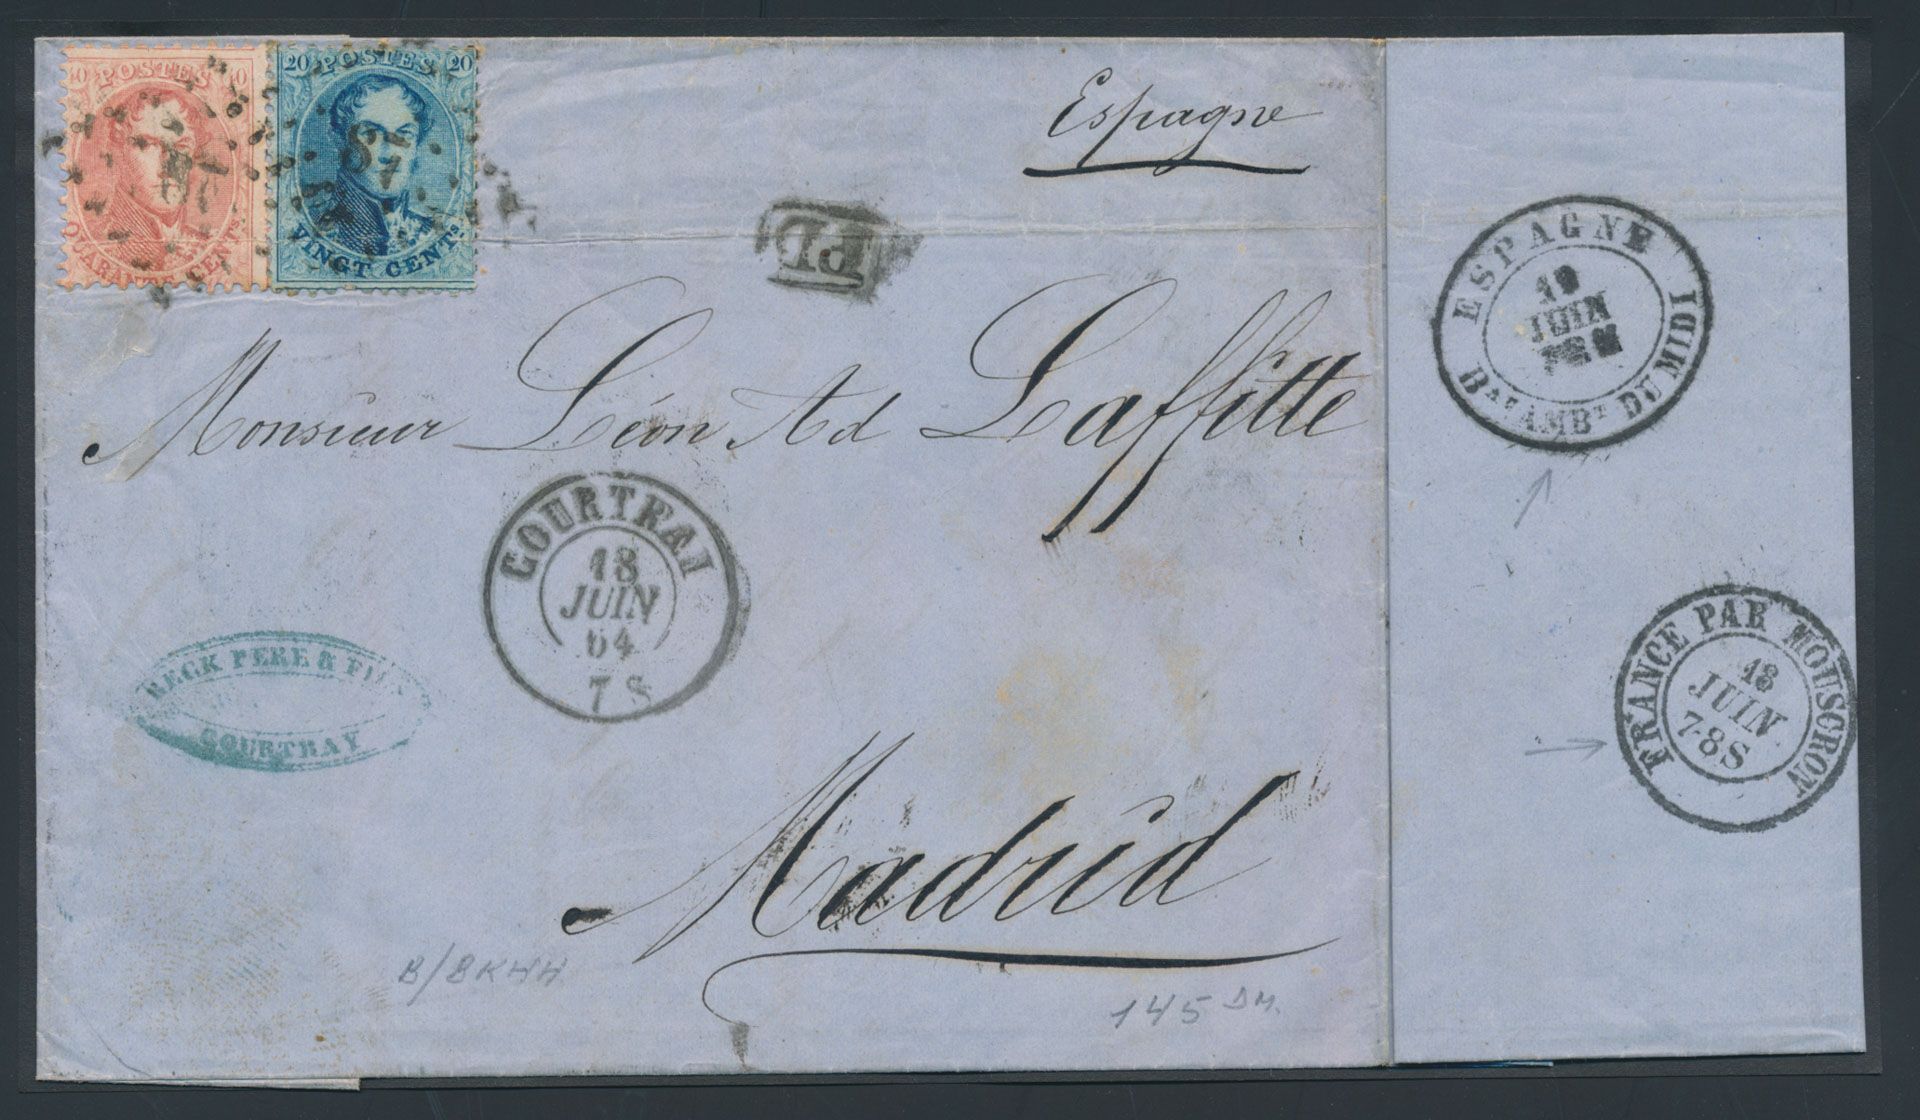 POSTES
QUARANTE CENTS
20 POSTES 20
VINGT CENTS
87
Espagne
PD
Monsieur Léon Ad Laffitte
COURTRAI
18
JUIN
64
7 S
RECK PERE & FILS
COURTRAY
Madrid
B/BKHH
145 DM.
ESPAGNE
19
JUIN
64
Bau AMBt DU MIDI I
FRANCE PAR MOUSCRON
18
JUIN
7-8S